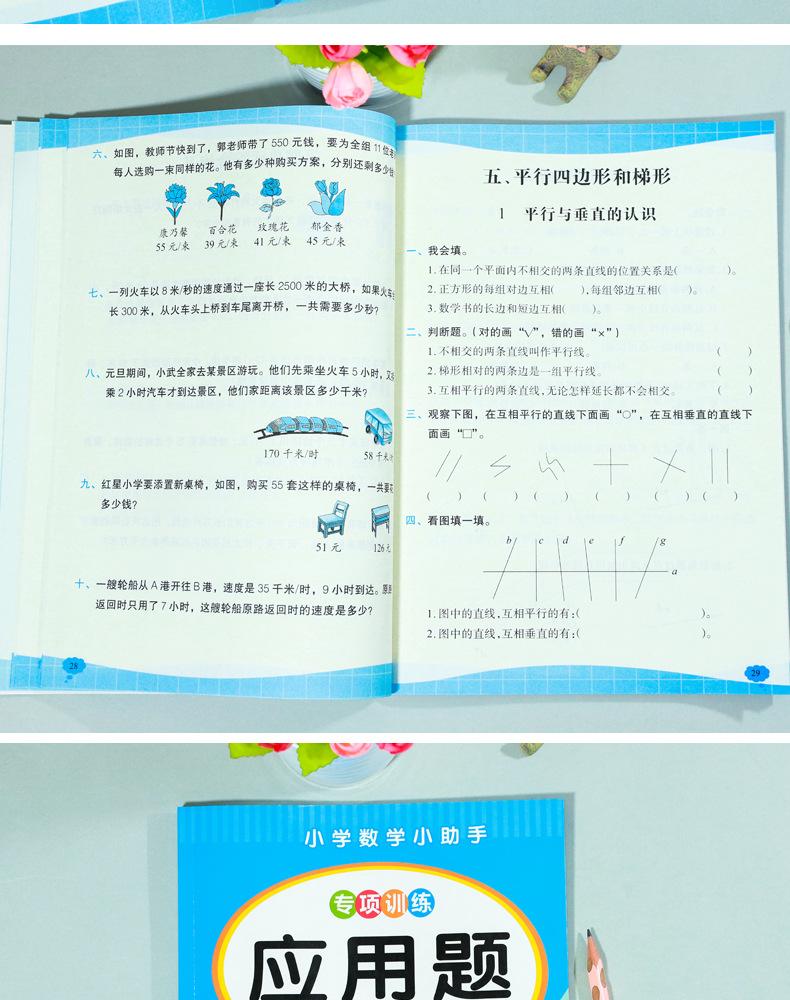 六、如图，教师节快到了，郭老师带了 550 元钱，要为全组 11 位老
每人选购一束同样的花。他有多少种购买方案，分别还剩多少钱
康乃馨 百合花 玫瑰花 郁金香
55 元/束 39 元/束 41 元/束 45 元/束
七、一列火车以 8 米/秒的速度通过一座长 2500 米的大桥，如果火车
长 300 米，从火车头上桥到车尾离开桥，一共需要多少秒？
八、元旦期间，小武全家去某景区游玩。他们先乘坐火车 5 小时，又
乘 2 小时汽车才到达景区，他们家距离该景区多少千米？
170 千米/时 58 千米
九、红星小学要添置新桌椅，如图，购买 55 套这样的桌椅，一共要
多少钱？
51 元 126 元
十、一艘轮船从 A 港开往 B 港，速度是 35 千米/时，9 小时到达。原
返回时只用了 7 小时，这艘轮船原路返回时的速度是多少？
28
五、平行四边形和梯形
1 平行与垂直的认识
一、我会填。
1.在同一个平面内不相交的两条直线的位置关系是( )。
2.正方形的每组对边互相( )，每组邻边互相( )。
3.数学书的长边和短边互相( )。
二、判断题。(对的画“√”，错的画“×”)
1.不相交的两条直线叫作平行线。 ( )
2.梯形相对的两条边是一组平行线。 ( )
3.互相平行的两条直线，无论怎样延长都不会相交。 ( )
三、观察下图，在互相平行的直线下面画“○”，在互相垂直的直线下
面画“□”。
( ) ( ) ( ) ( ) ( ) ( )
四、看图填一填。
b c d e f g
a
1.图中的直线，互相平行的有：( )。
2.图中的直线，互相垂直的有：( )。
29
小学数学小助手
专项训练
应用题